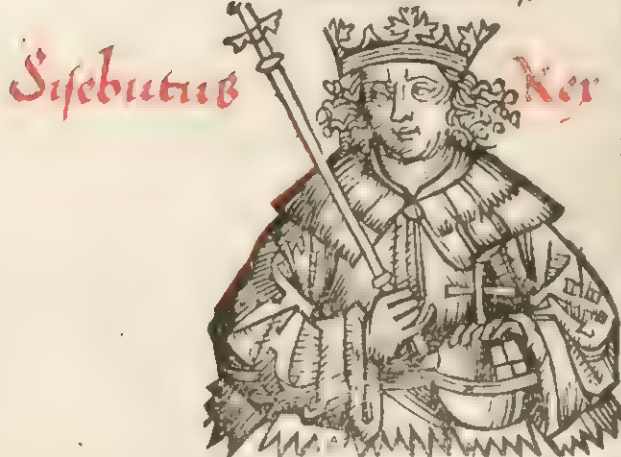 Sisebutus Rex